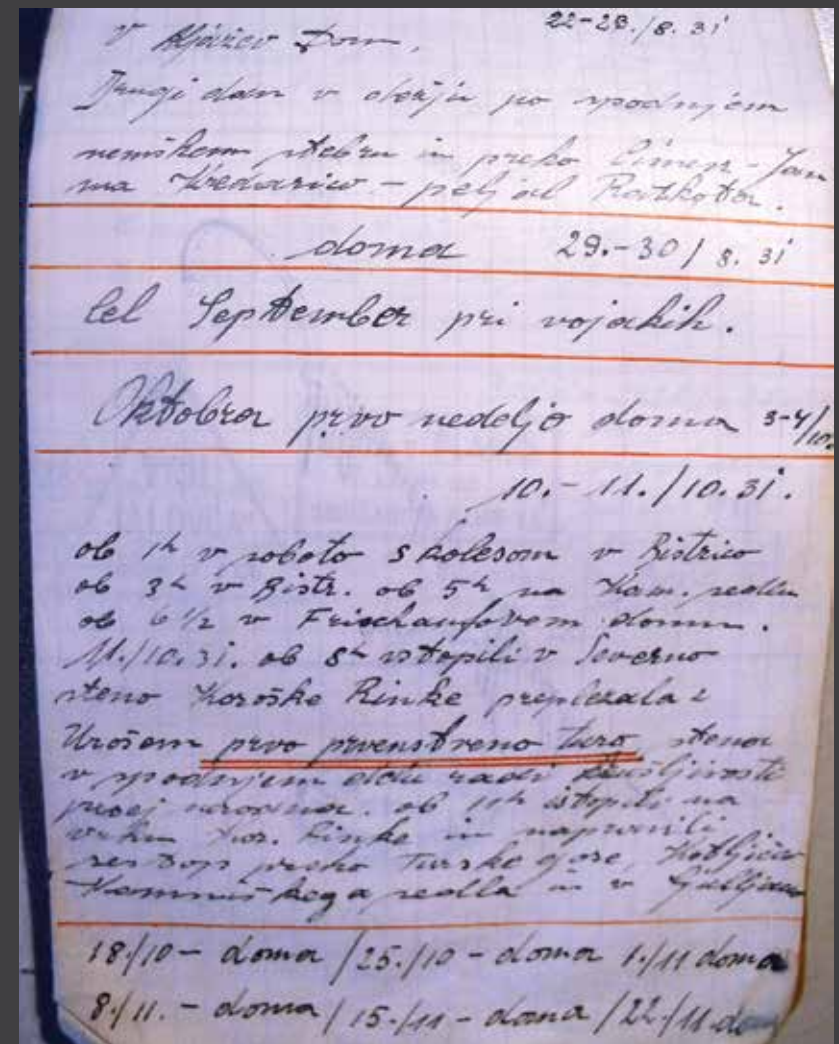 22-23./8. 31
V Aljažev Dom,
Drugi dan v dežju po spodnjem
nemškem stebru in preko Cimer-Jam
na Kredarico - peljal Razkotov.
doma 29.-30/8. 31
Cel September pri vojakih.
Oktobra prvo nedeljo doma 3-4/10.
10.-11./10.31.
ob 1h v soboto s kolesom v Bistrico
ob 3h v Bistr. ob 5h na Kam. sedlu
ob 6 1/2 v Frischaufovem domu.
11./10.31. ob 8h vstopili v Severno
steno Koroške Rinke preplezala z
Urošem prvo prvenstveno turo, stena
v spodnjem delu radi krušljivosti
precej nevarna. ob 11h istopili na
vrhu Kor. Rinke in napravili
sestop preko Turske gore, Kotličev
Kamniškega sedla in v Ljubljano
18./10 - doma / 25./10 - doma 1./11 doma
8./11. - doma / 15./11 - doma / 22./11. doma